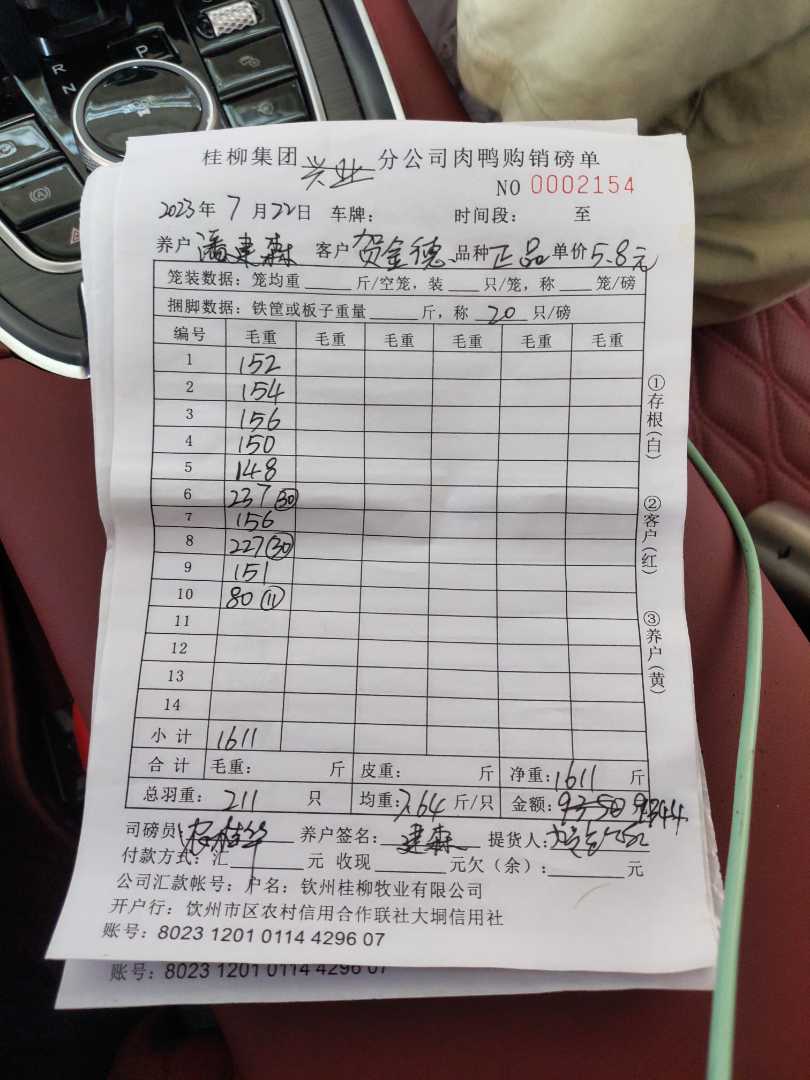 P
R
N
桂柳集团 兴业 分公司肉鸭购销磅单
NO 0002154
2023年 7 月 22日 车牌： 时间段： 至
养户 潘建森 客户 贺金德 品种 正品 单价 5.8元
笼装数据：笼均重 斤/空笼，装 只/笼，称 笼/磅
捆脚数据：铁筐或板子重量 斤，称 20 只/磅
编号 毛重 毛重 毛重 毛重 毛重 毛重
1 152
2 154
3 156
4 150
5 148
6 237 30
7 156
8 227 30
9 151
10 80 11
11
12
13
14
小计 1611
合计 毛重： 斤 皮重： 斤 净重：1611 斤
总羽重：211 只 均重：7.64 斤/只 金额：9350 9344
司磅员： 养户签名：建森 提货人：
付款方式：汇 元 收现 元欠（余）： 元
公司汇款帐号：户名：钦州桂柳牧业有限公司
开户行：钦州市区农村信用合作联社大垌信用社
账号：8023 1201 0114 4296 07
账号：8023 1201 0114 4296 07
①存根（白）
②客户（红）
③养户（黄）